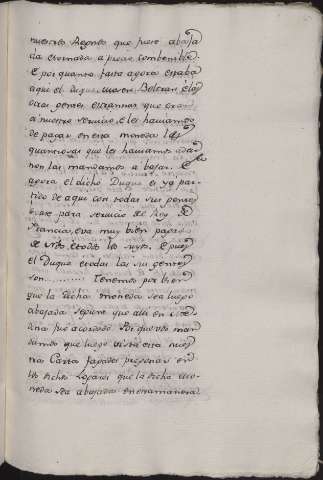 nuestros Regnos que fuese abaja
da e tornada a precio combenible.
E por quanto fasta agora estaba
aqui el Duque mosen Beltran, e los
otras gentes estrannas que eran
a nuestro servicio, e les haviamos
de pagar en esta moneda las
quantiosas que les haviamos a dar
non las mandamos a bajar. E
agora el dicho Duque es ya par-
tido de aqui con todas sus gentes
para servicio de Rey de
Francia, e va muy bien pagado
de Nos, e todos los suyos. E pues
el Duque e todas las sus gentes
son .......... Tenemos por bien
que la dicha moneda sea luego
abajada segunt que alli en Me
dina fue acordado. Por que vos man
damos que luego vista esta nues
tra Carta fagades pregonar en
los dichos Logares que la dicha mo-
neda sea abajada en esta manera